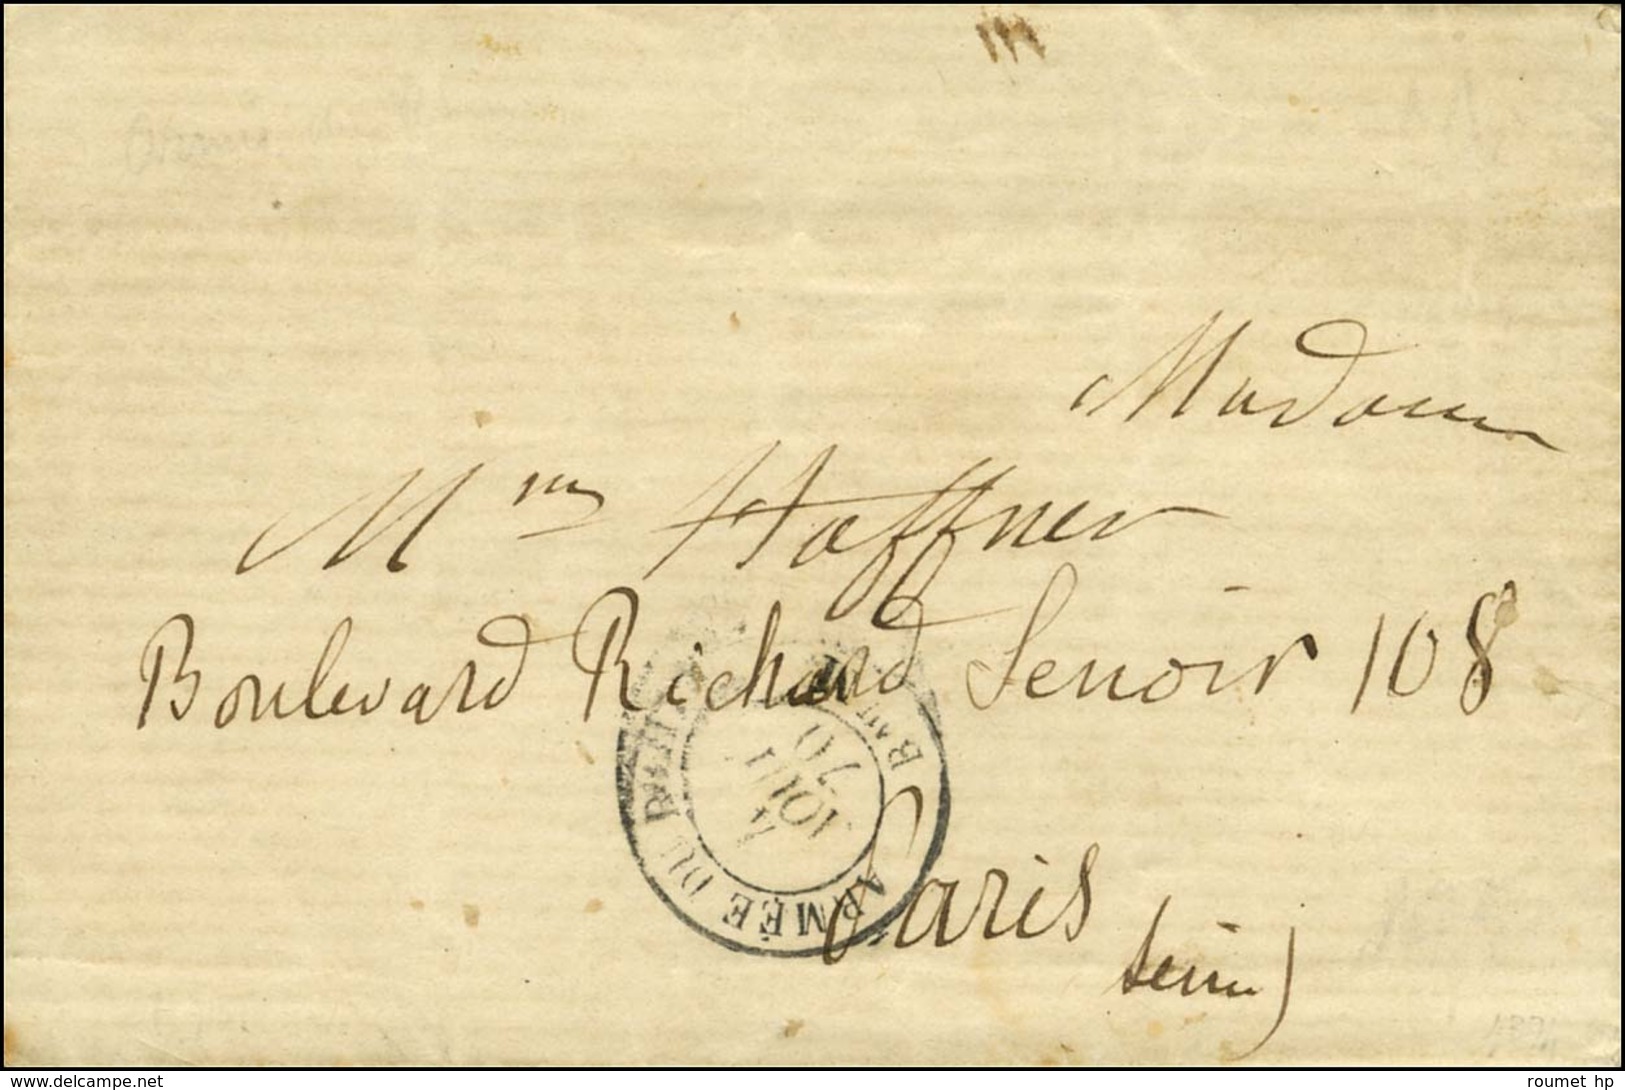 Madame
Mme Haffner
Boulevard Richard Lenoir 108
ARMÉE DU RHIN
4
AOUT
70
Paris
Seine)
www.delcampe.net
roumet hp